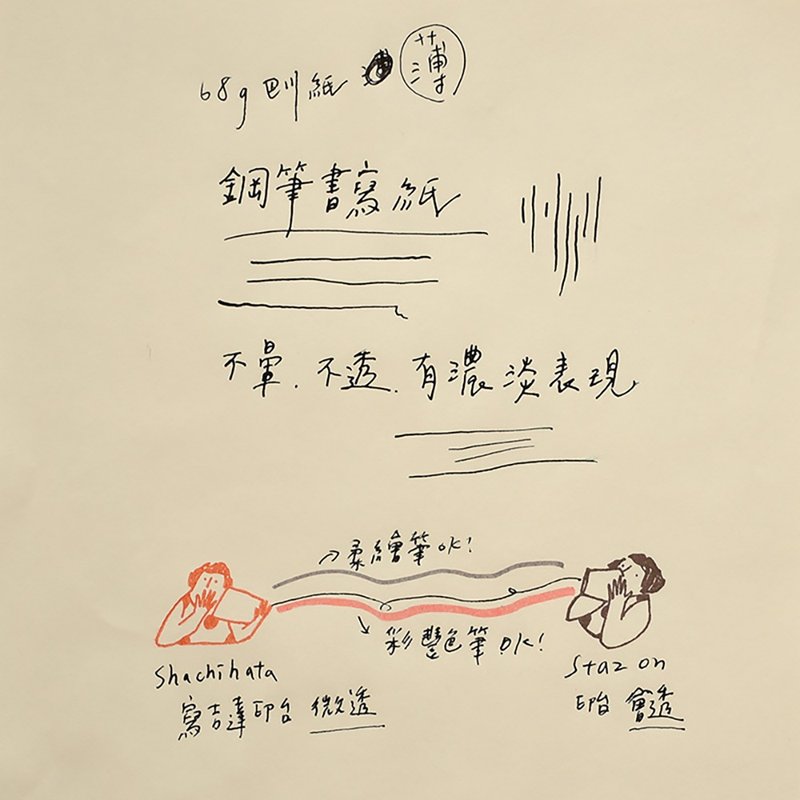 68g 巴川紙 薄
鋼筆書寫紙
不暈.不透.有濃淡表現
柔繪筆OK!
彩艷色筆OK!
Shachihata
寫吉達印台 微透
Stazon
印台 會透